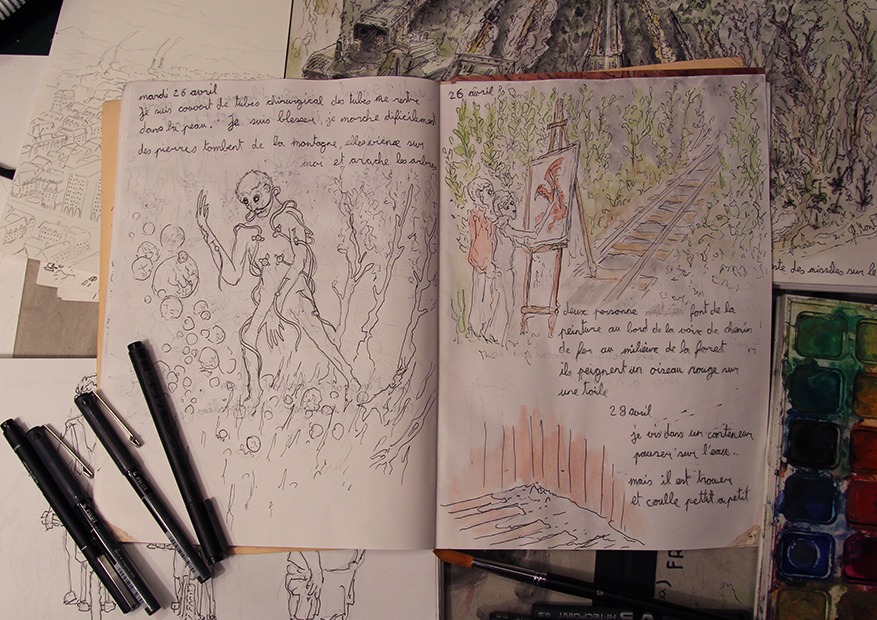 mardi 26 avril
je suis couvert de tubes chirurgical des tubes me rentre
dans la peau. Je suis blesser, je marche dificilement
des pierres tombent de la montagne, elles vienne sur
moi et arache les arbres
26 avril
deux personne font de la
peinture au bord de la voix de chemin
de fer au milieux de la foret
ils peignent un oiseau rouge sur
une toile
28 avril
je vis dans un conteneur
pauser sur l'eau...
mais il est trouer
et coulle pettit a petit
des missiles sur le